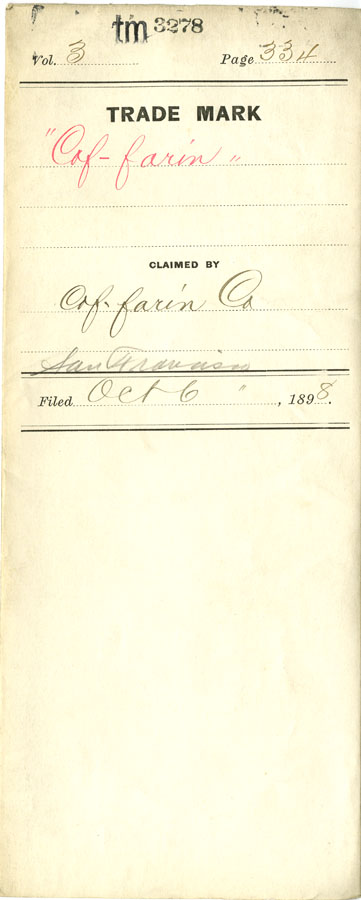 tm 3278
Vol. 3 Page 334
TRADE MARK
"Cof-farin"
CLAIMED BY
Cof-farin Co
San Francisco
Filed Oct 6 ", 1898.